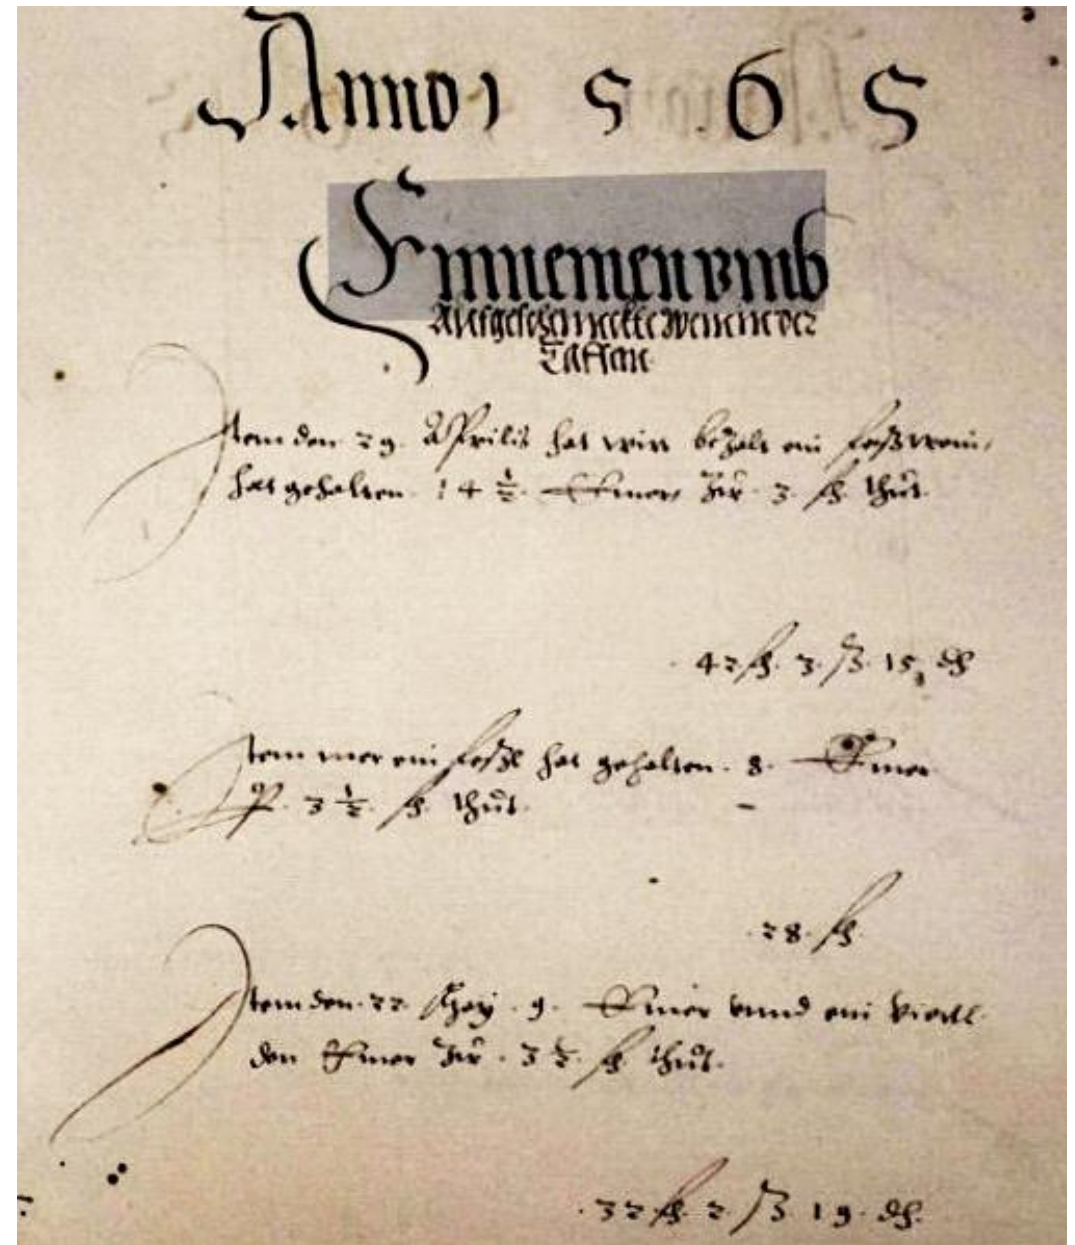 Anno 1 5 6 5
Einnemen vmb
Ausgeschenckte Wein in der
Taffern
Item den 29. Apprilis hat wirt bezalt ein fesß wein,
hat gehalten. 14 ½. Emer, zu. 3. fl. thut.
42 fl. 3. ß. 15 dn
Item mer ein fesßl hat gehalten. 8. Emer
P. 3 ½. fl. thut.
28. fl.
Item den. 22. May. 9. Emer vnnd ein viertl.
den Emer zu. 3 ½. fl. thut.
32 fl. 2. ß 19. dn.